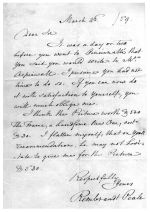 March 26 /59
Dear Sir
It was a day or two
before you went to Brunswick, that
you said you would write to Mr.
Aspinwall. I presume you had not
time to do so. If you can now do
it with satisfaction to yourself, you
will much oblige me.
I think the Picture worth $500
the Frame, a handsome one,
I flatter myself, that on your
recommendation, he may not hesi-
tate to give me for the Picture
$ 500.
Respectfully
Yours
Rembrandt Peale